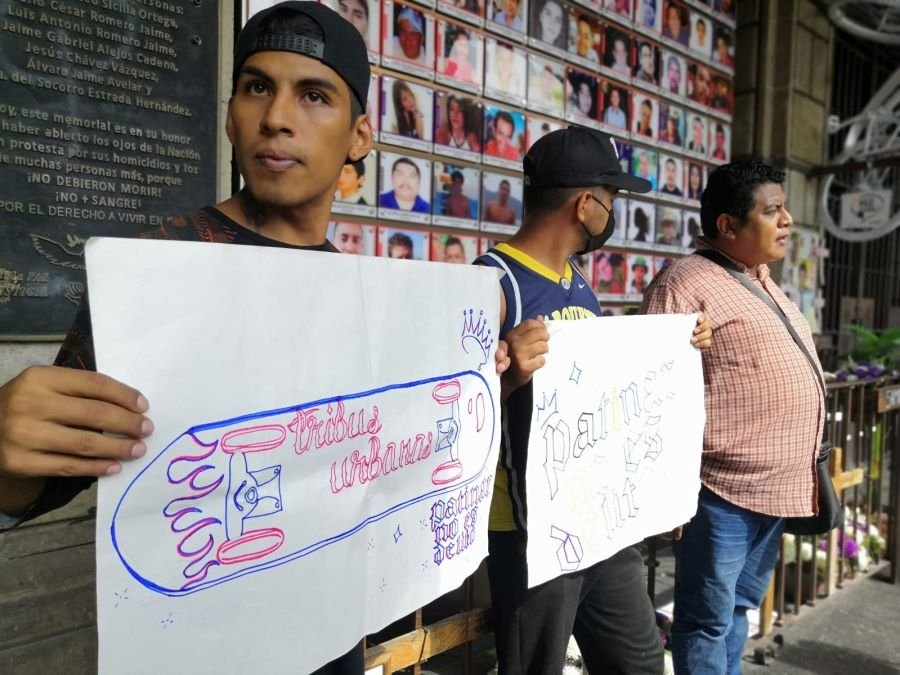 sico Sicilia Ortega,
io César Romero Jaime,
Luis Antonio Romero Jaime,
Jaime Gabriel Alejos Cadena,
Jesús Chávez Vázquez,
Álvaro Jaime Avelar y
del Socorro Estrada Hernández.
oy, este memorial es en su honor
haber abierto los ojos de la Nación
protesta por sus homicidios y los
de muchas personas más, porque
¡NO DEBIERON MORIR!
¡NO + SANGRE!
POR EL DERECHO A VIVIR EN
tribus
urbanas
patinar
no es
delito
patinar
no es